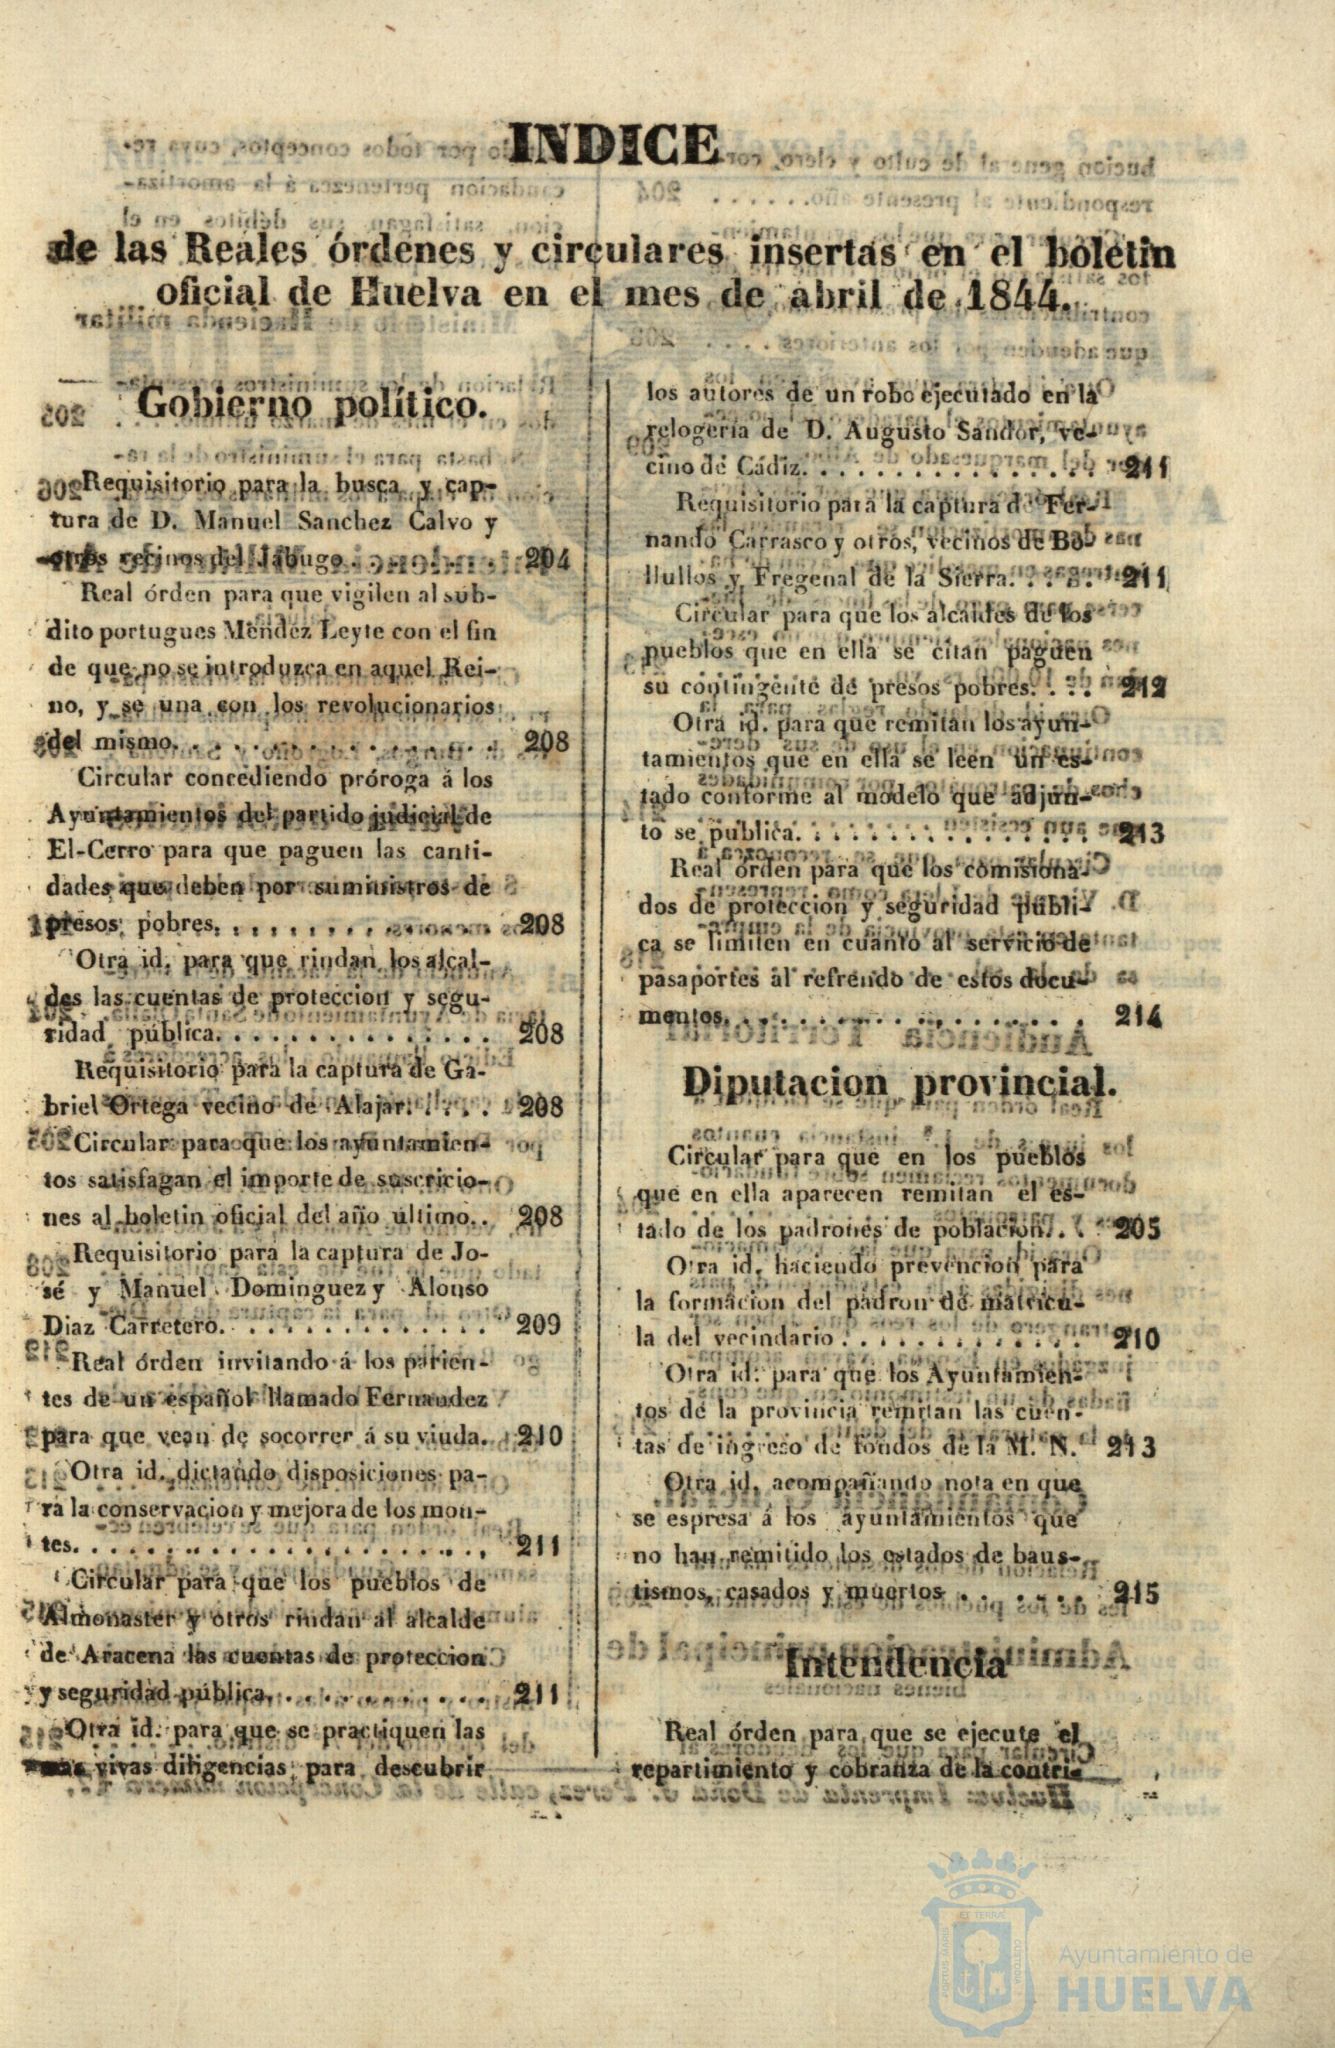 INDICE
de las Reales órdenes y circulares insertas en el boletin
oficial de Huelva en el mes de abril de 1844.
Gobierno político.
Requisitorio para la busca y cap-
tura de D. Manuel Sanchez Calvo y
otros vecinos del Jabugo. . . . . . 204
Real órden para que vigilen al súb-
dito portugues Mendez Leyte con el fin
de que no se introduzca en aquel Rei-
no, y se una con los revolucionarios
del mismo. . . . . . . . . . . . . . . 208
Circular concediendo próroga á los
Ayuntamientos del partido judicial de
El-Cerro para que paguen las canti-
dades que deben por suministros de
presos pobres. . . . . . . . . . . . 208
Otra id. para que rindan los alcal-
des las cuentas de proteccion y segu-
ridad pública. . . . . . . . . . . . . . 208
Requisitorio para la captura de Ga-
briel Ortega vecino de Alajar. . . . . 208
Circular para que los ayuntamien-
tos satisfagan el importe de suscricio-
nes al boletin oficial del año último. . 208
Requisitorio para la captura de Jo-
sé y Manuel Dominguez y Alonso
Diaz Carretero. . . . . . . . . . . . . 209
Real órden invitando á los parien-
tes de un español llamado Fernandez
para que vean de socorrer á su viuda. . 210
Otra id. dictando disposiciones pa-
ra la conservacion y mejora de los mon-
tes. . . . . . . . . . . . . . . . . . . . 211
Circular para que los pueblos de
Almonaster y otros rindan al alcalde
de Aracena las cuentas de proteccion
y seguridad pública. . . . . . . . . . . 211
Otra id. para que se practiquen las
mas vivas diligencias para descubrir
los autores de un robo ejecutado en la
relogería de D. Augusto Sandor, ve-
cino de Cádiz. . . . . . . . . . . . . . 211
Requisitorio para la captura de Fer-
nando Carrasco y otros, vecinos de Bo-
llullos y Fregenal de la Sierra. . . . . 211
Circular para que los alcaldes de los
pueblos que en ella se citan paguen
su contingente de presos pobres. . . . 212
Otra id. para que remitan los ayun-
tamientos que en ella se leen un es-
tado conforme al modelo que adjun-
to se publica. . . . . . . . . . . . . . . 213
Real órden para que los comisiona-
dos de proteccion y seguridad públi-
ca se limiten en cuanto al servicio de
pasaportes al refrendo de estos docu-
mentos. . . . . . . . . . . . . . . . . . 214
Diputacion provincial.
Circular para que en los pueblos
que en ella aparecen remitan el es-
tado de los padrones de poblacion. . . 205
Otra id. haciendo prevencion para
la formacion del padron de matrícu-
la del vecindario . . . . . . . . . . . . 210
Otra id. para que los Ayuntamien-
tos de la provincia remitan las cuen-
tas de ingreso de fondos de la M. N. 213
Otra id. acompañando nota en que
se espresa á los ayuntamientos que
no han remitido los estados de baus-
tismos, casados y muertos . . . . . . . 215
Intendencia
Real órden para que se ejecute el
repartimiento y cobranza de la contri-
PORTUS MARIS
ET TERRÆ
CUSTODIA
Ayuntamiento de
HUELVA